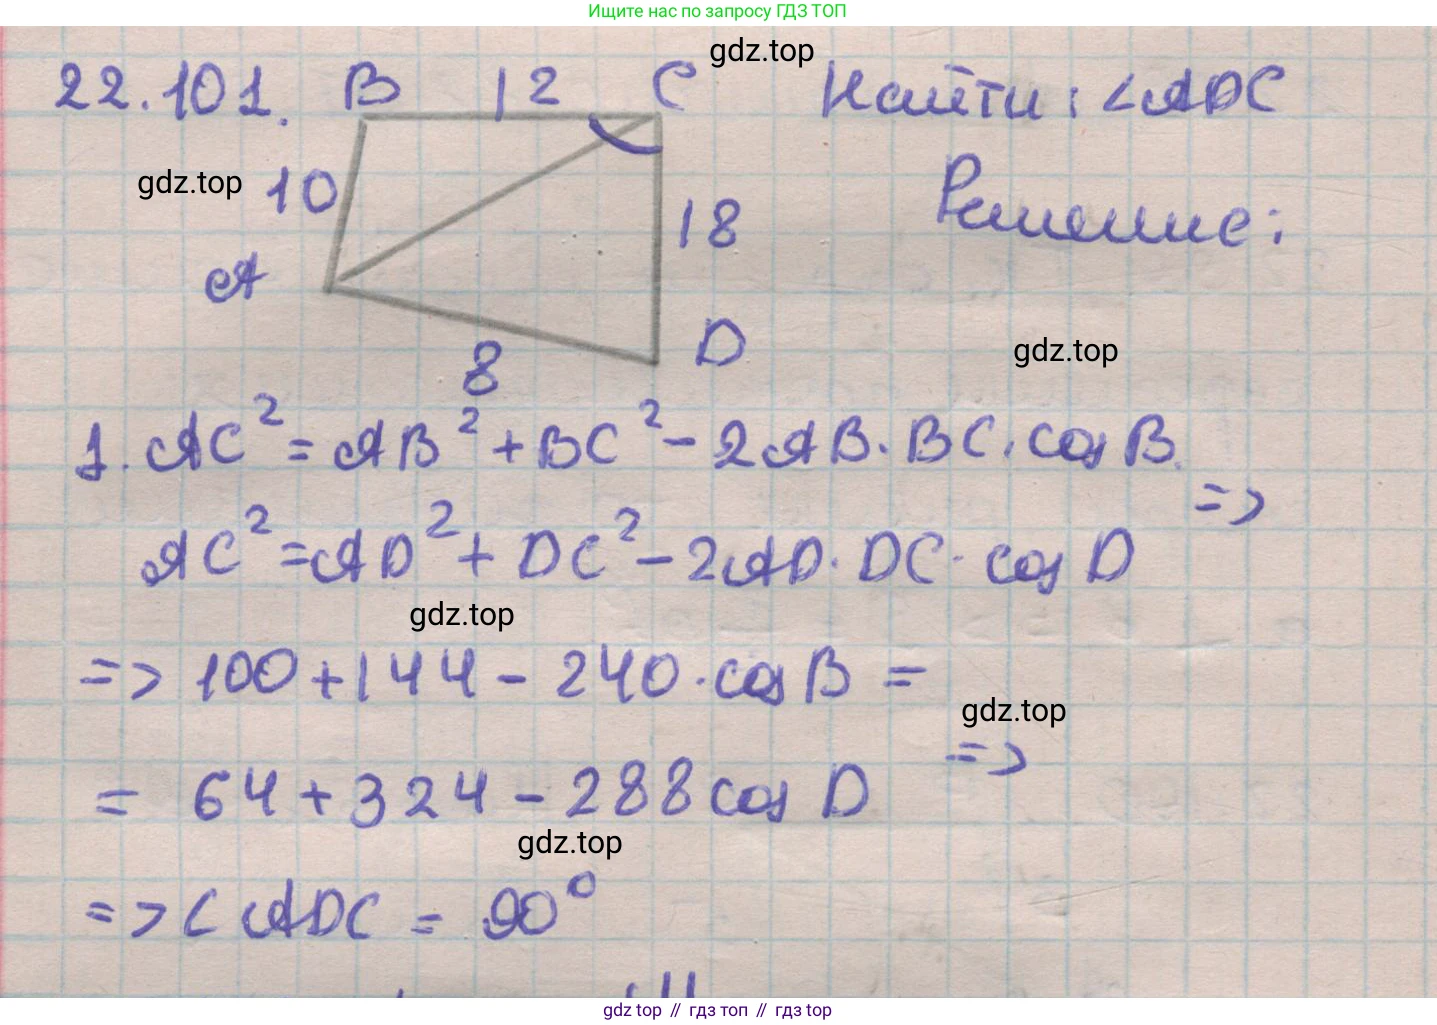 Ищите нас по запросу ГДЗ ТОП
gdz.top
22.101. B 12 C Найти: ∠ADC
gdz.top 10
18 Решение:
A
D
gdz.top
8
1. AC² = AB² + BC² - 2AB · BC · cos B
=>
AC² = AD² + DC² - 2AD · DC · cos D
gdz.top
=> 100 + 144 - 240 · cos B =
gdz.top
=>
= 64 + 324 - 288 cos D
gdz.top
=> ∠ADC = 90°
gdz top // гдз топ // гдз top